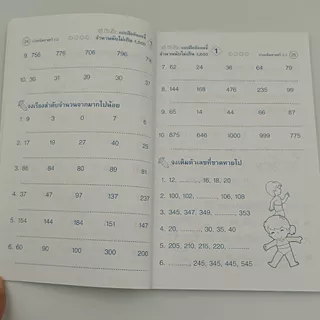 9. 756 776 706 796
10. 30 39 30 30
จงเรียงลำดับจำนวนจากมากไปน้อย
1. 9 3 0 7
2. 17 19 27 40
3. 86 84 80 81
4. 37 47 97 137
5. 154 144 184 151 147
6. 60 90 100 300 200
แบบฝึกหัดที่ 1
จำนวนนับไม่เกิน 1,000
7. 62 24 36 64 79
8. 144 108 476 235 99
9. 65 14 44 67
10. 875 646 1000 999 775
จงเติมตัวเลขที่ขาดหายไป
1. 12, ........, 16, 18, 20
2. 100, 102, ........, 106, 108
3. 345, 347, 349, ........, 353
4. 20, ........, 30, 35, 40
5. 205, 210, 215, 220, ........
6. ........, 245, 345, 445, 545